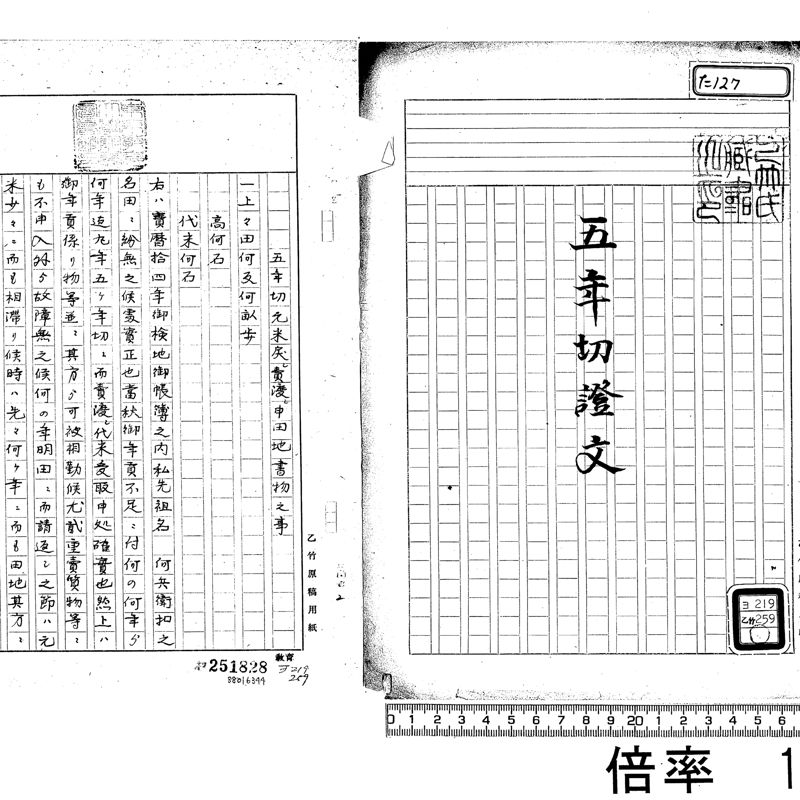 た127
乙竹氏
蔵書
五年切證文
ヨ 219
乙竹259
五年切元米戻シ賣渡シ申田地書物之事
一上々田何反何畝歩
高何石
代米何石
右ハ寶暦拾四年御検地御帳簿之内私先祖名 何兵衛扣之
名田ニ紛無之候處實正也當秋御年貢不足ニ付何の何年ゟ
何年迄九年五ヶ年切ニ而賣渡シ代米受取申処確實也然上ハ
御年貢係り物等並ニ其方ゟ可被相勤候尤貮重賣質物等ニ
も不申入外ゟ故障無之候何の年明田ニ而請返し之節ハ元
米少々ニ而も相滞り候時ハ先々何ヶ年ニ而も田地其方ニ
乙竹原稿用紙
251828
教育
ヨ219
259
38016344
0 1 2 3 4 5 6 7 8 9 20 1 2 3 4 5 6
倍率 1